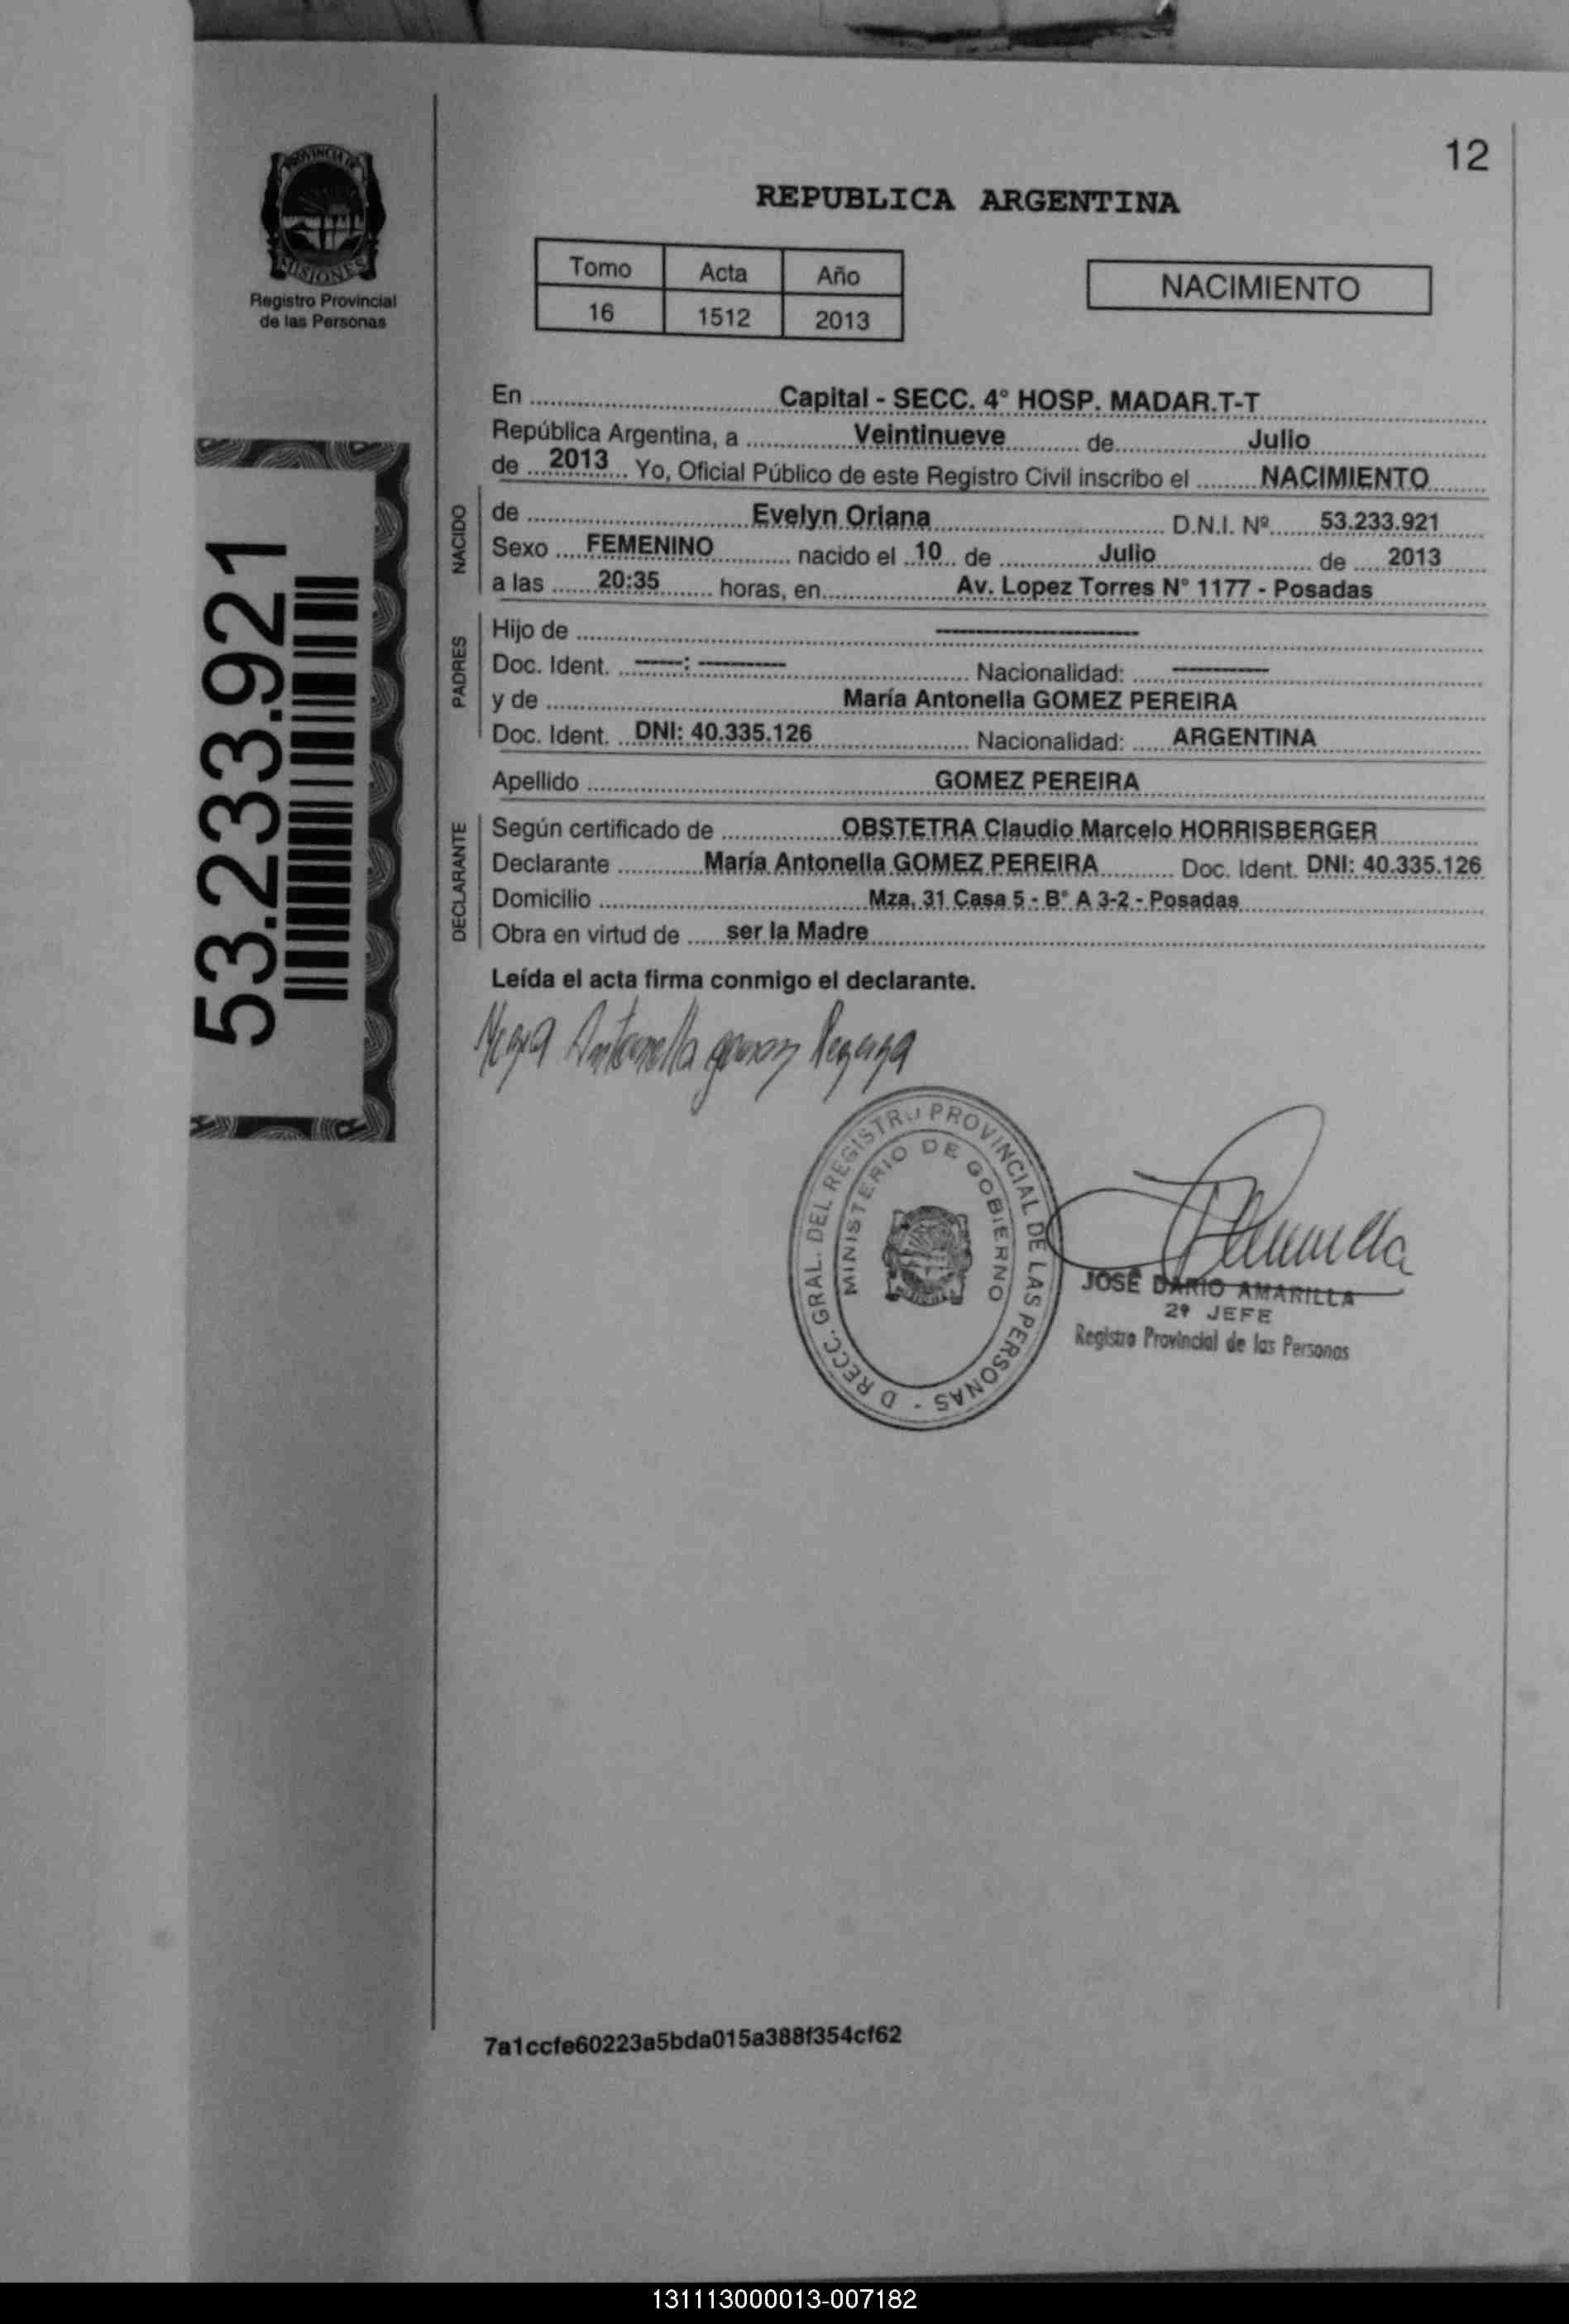 12
REPUBLICA ARGENTINA
PROVINCIA DE
MISIONES
Registro Provincial
de las Personas
Tomo Acta Año
16 1512 2013
NACIMIENTO
53.233.921
En Capital - SECC. 4° HOSP. MADAR.T-T
República Argentina, a Veintinueve de Julio
de 2013 Yo, Oficial Público de este Registro Civil inscribo el NACIMIENTO
NACIDO
de Evelyn Oriana D.N.I. Nº 53.233.921
Sexo FEMENINO nacido el 10 de Julio de 2013
a las 20:35 horas, en Av. Lopez Torres N° 1177 - Posadas
PADRES
Hijo de ----------
Doc. Ident. ----: -------- Nacionalidad: --------
y de María Antonella GOMEZ PEREIRA
Doc. Ident. DNI: 40.335.126 Nacionalidad: ARGENTINA
Apellido GOMEZ PEREIRA
DECLARANTE
Según certificado de OBSTETRA Claudio Marcelo HORRISBERGER
Declarante María Antonella GOMEZ PEREIRA Doc. Ident. DNI: 40.335.126
Domicilio Mza. 31 Casa 5 - B° A 3-2 - Posadas
Obra en virtud de ser la Madre
Leída el acta firma conmigo el declarante.
Antonella
D RECC. GRAL. DEL REGISTRO PROVINCIAL DE LAS PERSONAS -
MINISTERIO DE GOBIERNO
JOSÉ DARIO AMARILLA
2º JEFE
Registro Provincial de las Personas
7a1ccfe60223a5bda015a388f354cf62
131113000013-007182